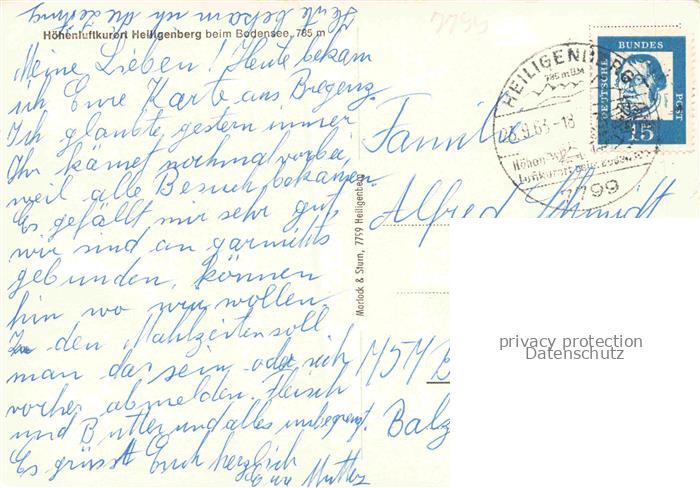 Heute bekam ich die Zeitung
Höhenluftkurort Heiligenberg beim Bodensee, 785 m
Meine Lieben! Heute bekam
ich Eure Karte aus Bregenz.
Ich glaubte, gestern immer
Ihr kämet nochmal vorbei,
weil alle Besuch bekamen.
Es gefällt mir sehr gut,
wir sind an garnichts
gebunden, können
hin wo wir wollen
Zu den Mahlzeiten soll
man da sein oder sich
vorher abmelden. Fleisch
und Butter und alles unbegrenzt.
Es grüsst Euch herzlich
Eure Mutter
Marlock & Sturn, 7799 Heiligenberg
HEILIGENBERG
785 m ü.M.
9.63-18
Höhen
Luftkurort beim Bodensee
7799
DEUTSCHE
BUNDES
POST
15
Familie
Alfred Schmidt
Balz
privacy protection
Datenschutz